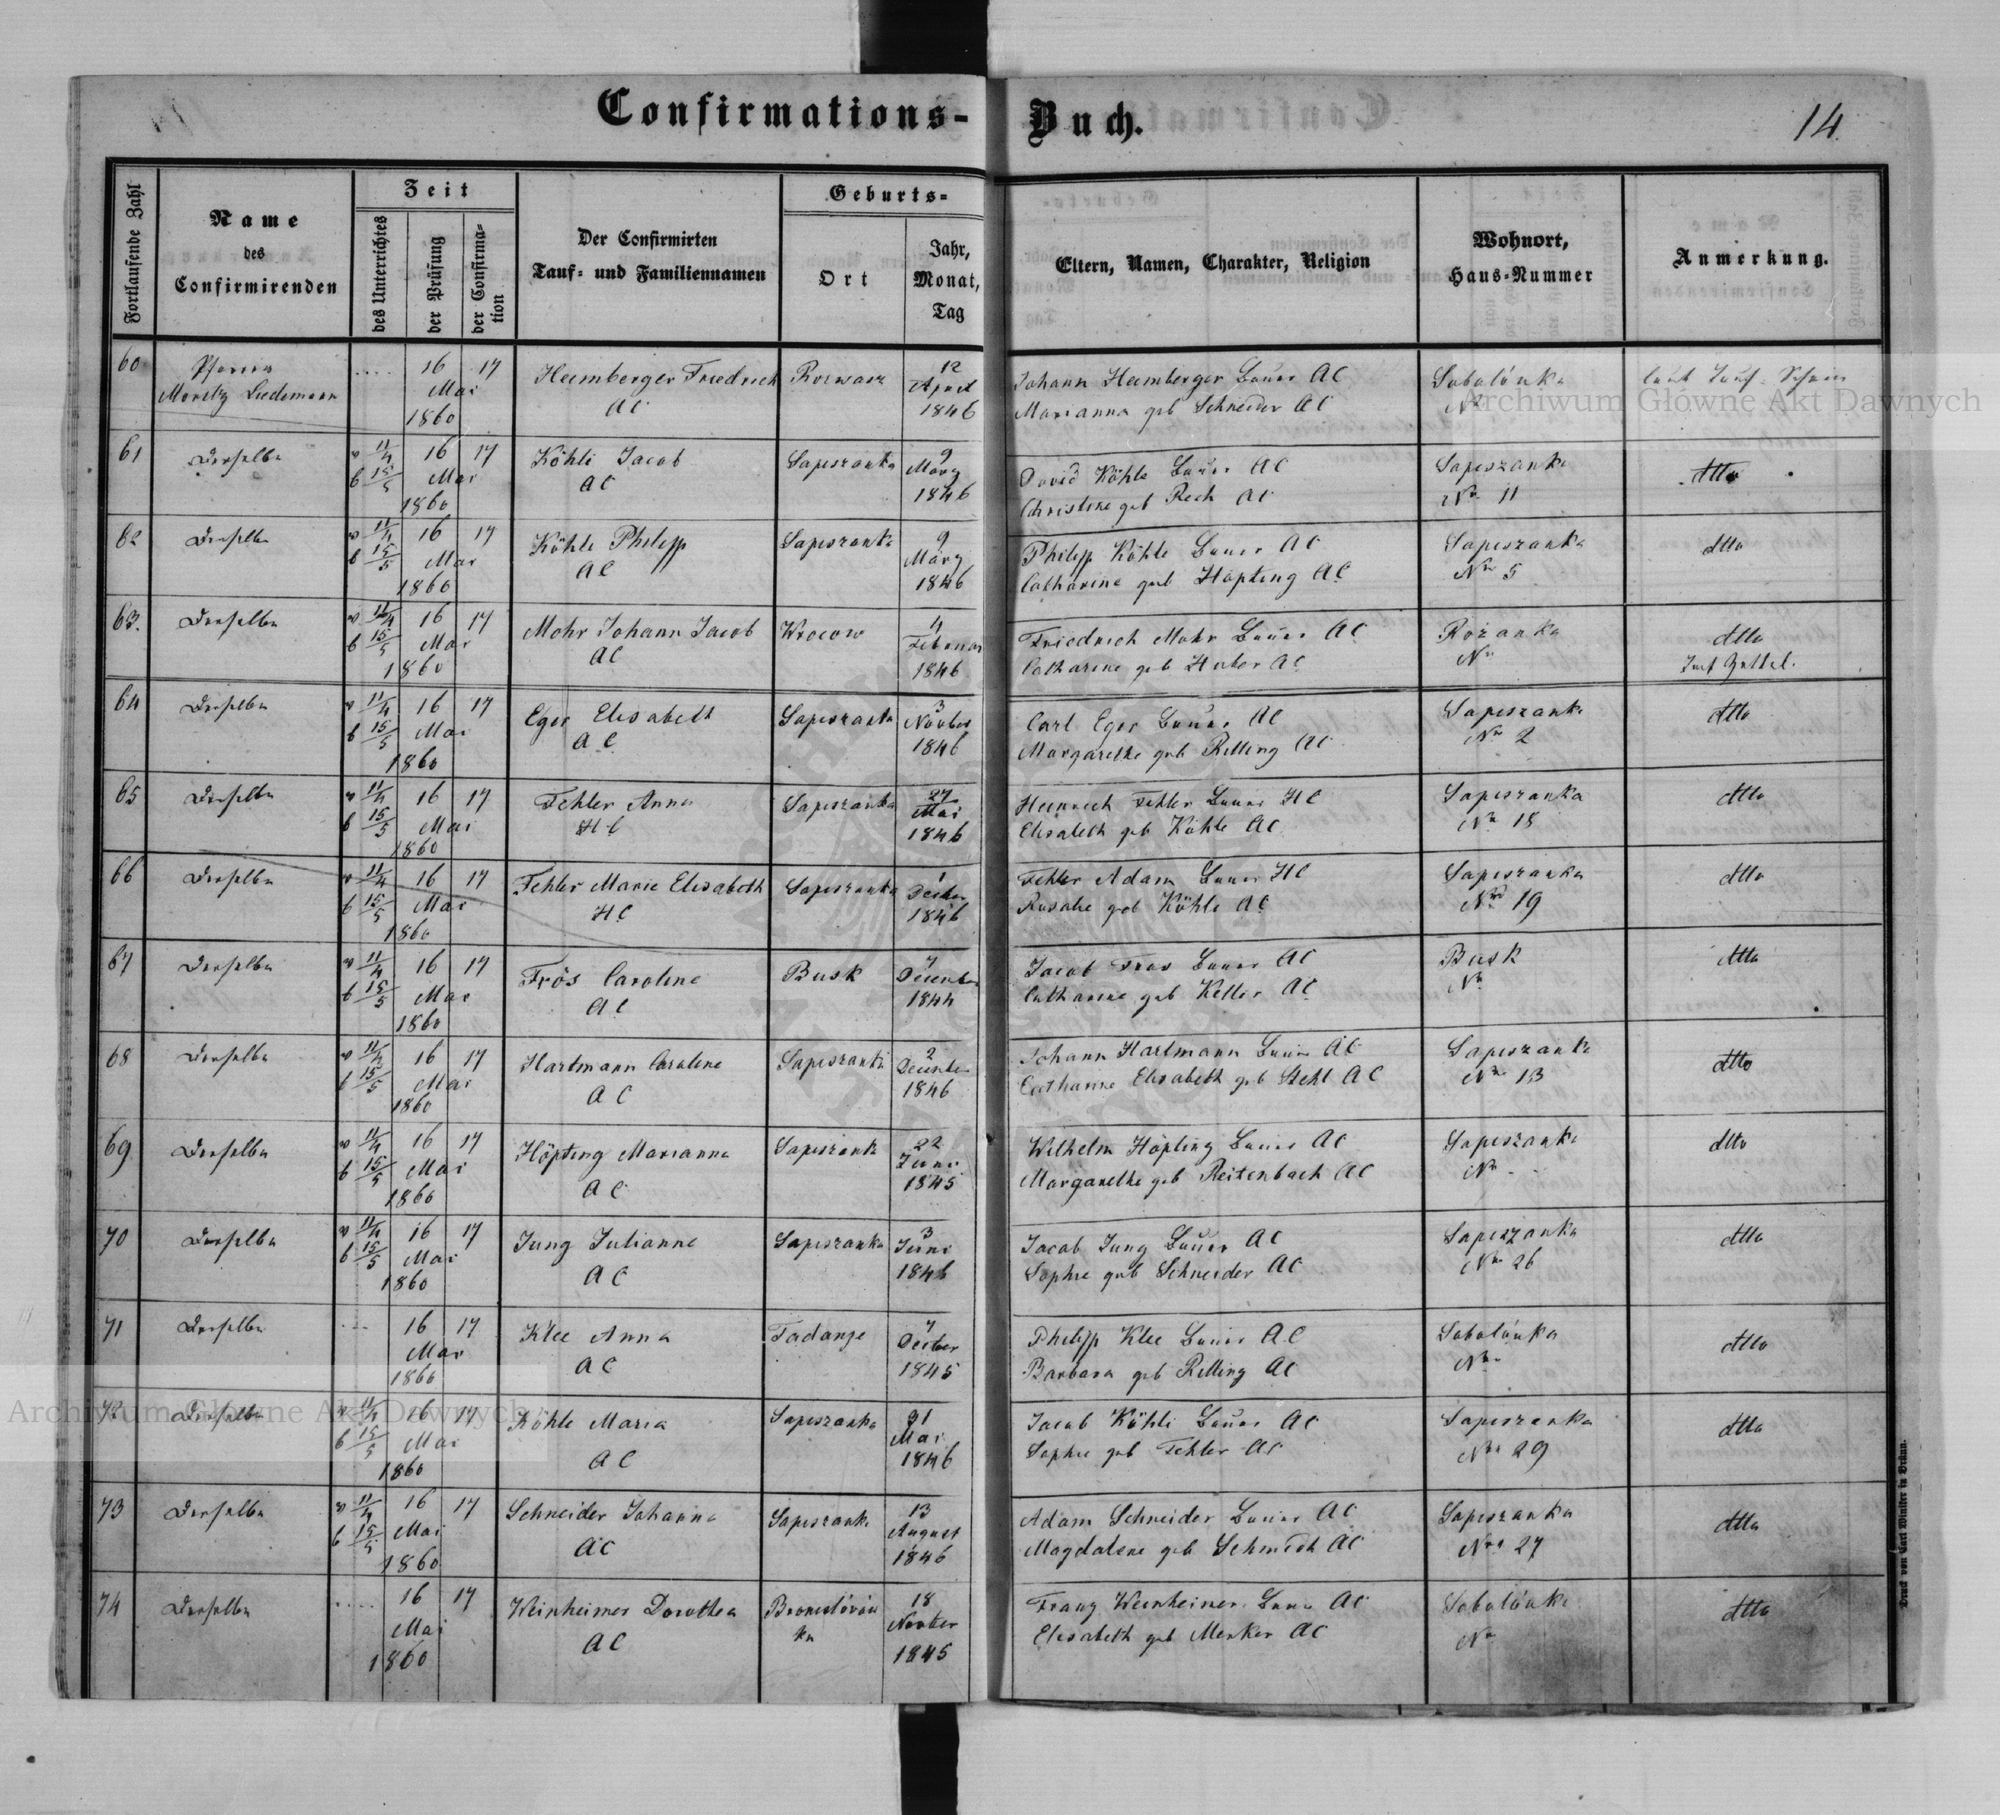 Confirmations-Buch.
14
Fortlaufende Zahl
Name
des
Confirmirenden
Zeit
des Unterrichtes
der Prüfung
der Confirma-
tion
Der Confirmirten
Tauf- und Familiennamen
Geburts-
Ort
Jahr,
Monat,
Tag
Eltern, Namen, Charakter, Religion
Wohnort,
Haus-Nummer
Anmerkung.
60 Pfarrer 16 17 Heimberger Friedrich 12 Johann Heimberger Bauer AC Sabalówka laut Tauf-Schein
Moritz Mai AC April Marianna geb Schneider AC Nr
1860 1846
61 Derselbe a 11/4 16 17 Köhle Jacob Sapieszanka 9 David Köhle Bauer AC Sapieszanka dtto
b 15/5 Mai AC März Christine geb Rech AC Nr 11
1860 1846
62 Derselbe a 11/4 16 17 Köhle Philipp Sapieszanka 9 Philipp Köhle Bauer AC Sapieszanka dtto
b 15/5 Mai AC März Catharine geb Höpting AC Nr 5
1860 1846
63. Derselbe a 11/4 16 17 Mohr Johann Jacob 4 Friedrich Mohr Bauer AC Rożanka dtto
b 15/5 Mai AC Februar Catharine geb Huber AC Nr
1860 1846
64 Derselbe a 11/4 16 17 Eger Elisabeth Sapieszanka 3 Carl Eger Bauer AC Sapieszanka dtto
b 15/5 Mai AC Novber Margarethe geb Rilling AC Nr 2
1860 1846
65 Derselbe a 11/4 16 17 Fehler Anna Sapieszanka 27 Heinrich Fehler Bauer HC Sapieszanka dtto
b 15/5 Mai HC Mai Elisabeth geb Köhle AC Nr 18
1860 1846
66 Derselbe a 11/4 16 17 Fehler Marie Elisabeth Sapieszanka 1 Fehler Adam Bauer HC Sapieszanka dtto
b 15/5 Mai HC Decber Rosalie geb Köhle AC Nro 19
1860 1846
67 Derselbe a 11/4 16 17 Frös Caroline Busk 7 Jacob Frös Bauer AC Busk dtto
b 15/5 Mai AC December Catharine geb Keller AC Nr
1860 1844
68 Derselbe a 11/4 16 17 Hartmann Caroline Sapieszanka 2 Johann Hartmann Bauer AC Sapieszanka dtto
b 15/5 Mai AC December Catharine Elisabeth geb Stehl AC Nr 13
1860 1846
69 Derselbe a 11/4 16 17 Höpting Marianna Sapieszanka 22 Wilhelm Höpting Bauer AC Sapieszanka dtto
b 15/5 Mai AC Juni Margarethe geb Reitenbach AC Nr
1860 1845
70 Derselbe a 11/4 16 17 Jung Julianne Sapieszanka 3 Jacob Jung Bauer AC Sapieszanka dtto
b 15/5 Mai AC Juni Sophie geb Schneider AC Nr 26
1860 1846
71 Derselbe 16 17 Klee Anna Tadanje 7 Philipp Klee Bauer AC Sabalówka dtto
Mai AC Decber Barbara geb Rilling AC Nr
1860 1845
72 Derselbe a 11/4 16 17 Köhle Maria Sapieszanka 31 Jacob Köhle Bauer AC Sapieszanka dtto
b 15/5 Mai AC Mai Sophie geb Fehler AC Nro 29
1860 1846
73 Derselbe a 11/4 16 17 Schneider Johanna Sapieszanka 13 Adam Schneider Bauer AC Sapieszanka dtto
b 15/5 Mai AC August Magdalene geb Schmidt AC Nro 27
1860 1846
74 Derselbe 16 17 Weinheimer Dorothea 18 Franz Weinheimer Bauer AC Sabalówka dtto
Mai AC Novber Elisabeth geb Merker AC Nr
1860 1845
Druck von Carl Winiker in Brünn.
Archiwum Główne Akt Dawnych
Archiwum Główne Akt Dawnych